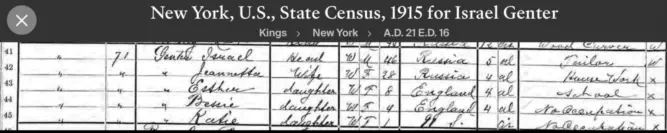 New York, U.S., State Census, 1915 for Israel Genter
Kings > New York > A.D. 21 E.D. 16
Wood Carver W
41 " 71 Genter Israel Head W M 46 Russia 5 al Tailor W
42 " " Jeannetta Wife W F 28 Russia 4 al House Work x
43 " " Esther daughter W F 8 England 4 al School x
44 " " Bessie daughter W F 4 England 4 al No Occupation x
45 " " Katie daughter W F 1 U S No Occupation x